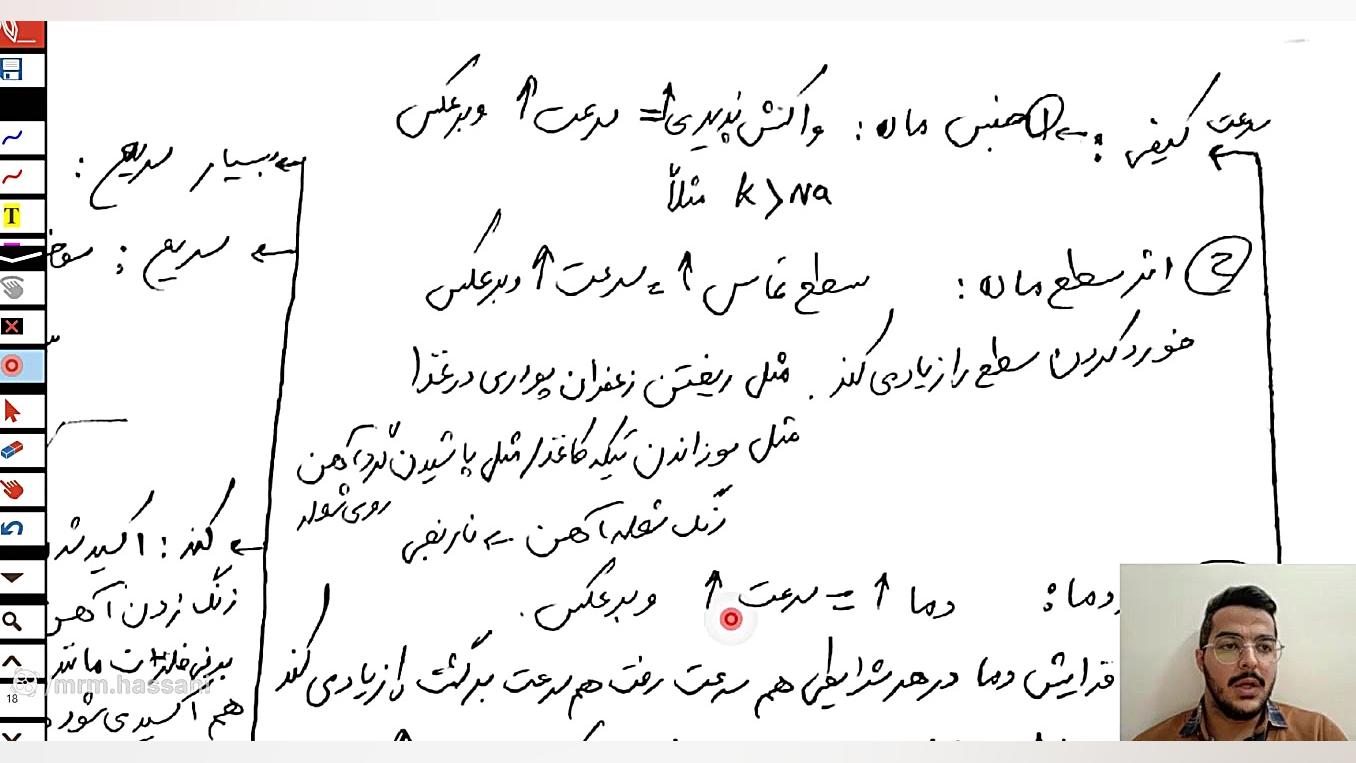 سرعت کیفی: ← ① جنس ماده: واکنش پذیری ↑ = سرعت ↑ وبرعکس
مثلاً K > Na
② اثر سطح ماده: سطح تماس ↑ = سرعت ↑ وبرعکس
خورد کردن سطح را زیاد می کند. مثل ریختن زعفران پودری در غذا
مثل سوزاندن تیکه کاغذ / مثل پاشیدن گرد آهن
روی شعله
رنگ شعله آهن ← نارنجی
دما: دما ↑ = سرعت ↑ وبرعکس.
فزایش دما در هر شرایطی هم سرعت رفت هم سرعت برگشت را زیاد می کند
← بسیار سریع:
← سریع:
← کند: اکسید شد
زنگ زدن آهن
برخی فلزات مانند
هم اکسید می شود
/mrm.hassani
T
18